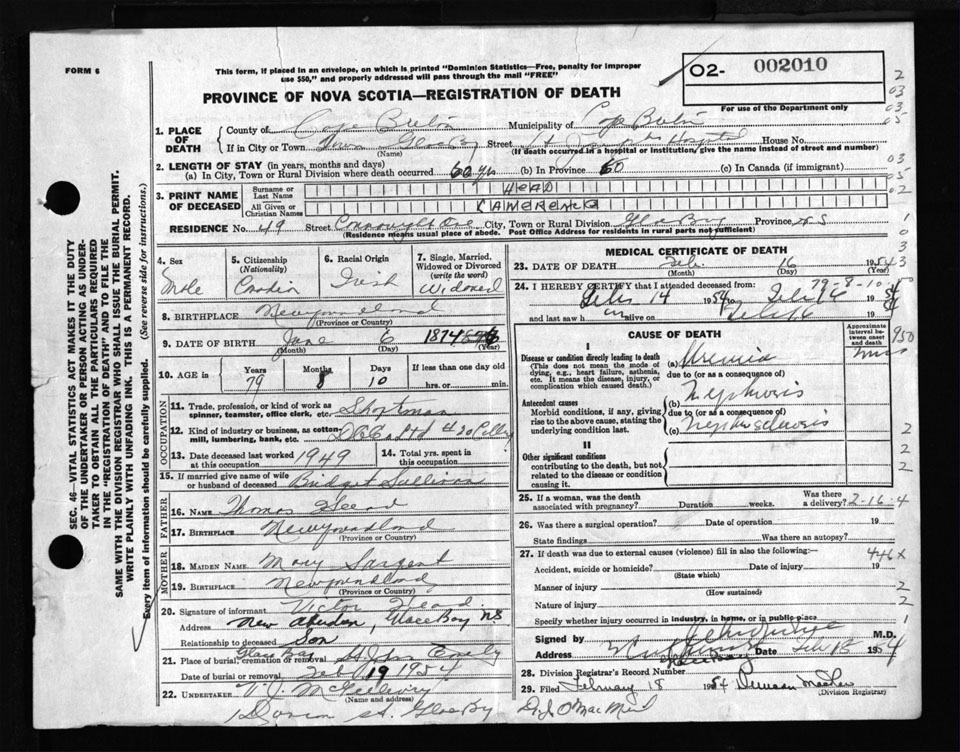 FORM 6
This form, if placed in an envelope, on which is printed "Dominion Statistics—Free, penalty for improper
use $50," and properly addressed will pass through the mail "FREE"
O2- 002010
For use of the Department only
PROVINCE OF NOVA SCOTIA—REGISTRATION OF DEATH
1. PLACE OF DEATH
County of Cape Breton Municipality of Cape Breton
If in City or Town Town Glace Bay Street Hospital House No.
(Name) (If death occurred in a hospital or institution, give the name instead of street and number)
2. LENGTH OF STAY (in years, months and days)
(a) In City, Town or Rural Division where death occurred 60 yrs (b) In Province 60 (c) In Canada (if immigrant)
3. PRINT NAME OF DECEASED
Surname or Last Name HEAD
All Given or Christian Names
RESIDENCE No. 49 Street Connought Ave City, Town or Rural Division Glace Bay Province N S
(Residence means usual place of abode. Post Office Address for residents in rural parts not sufficient)
4. Sex
Male
5. Citizenship
(Nationality)
6. Racial Origin
Irish
7. Single, Married, Widowed or Divorced
(write the word)
Widowed
8. BIRTHPLACE Newfoundland
(Province or Country)
9. DATE OF BIRTH June 6 1874
(Month) (Day) (Year)
10. AGE in
Years Months Days If less than one day old
79 8 10 hrs. or min.
OCCUPATION
11. Trade, profession, or kind of work as
spinner, teamster, office clerk, etc. Shotman
12. Kind of industry or business, as cotton-
mill, lumbering, bank, etc.
13. Date deceased last worked
at this occupation 1949
14. Total yrs. spent in
this occupation
15. If married give name of wife
or husband of deceased Bridget Sullivan
FATHER
16. NAME Thomas Head
17. BIRTHPLACE Newfoundland
(Province or Country)
MOTHER
18. MAIDEN NAME Mary Sargent
19. BIRTHPLACE Newfoundland
(Province or Country)
20. Signature of informant Victor Head
Address New Aberdeen, Glace Bay NS
Relationship to deceased Son
21. Place of burial, cremation or removal Glace Bay
Date of burial or removal Feb 19 1954
22. UNDERTAKER V. J. McGillivry
St. Glace Bay
MEDICAL CERTIFICATE OF DEATH
23. DATE OF DEATH Feb. 16 1954
(Month) (Day) (Year)
79-8-10
24. I HEREBY CERTIFY that I attended deceased from:
Feb 14 1954 to Feb 16 1954
and last saw him alive on Feb 16 1954
CAUSE OF DEATH
Approximate interval between onset and death
I
Disease or condition directly leading to death
(This does not mean the mode of dying, e.g., heart failure, asthenia, etc. It means the disease, injury, or complication which caused death.)
(a) Uremia
due to (or as a consequence of)
Antecedent causes
Morbid conditions, if any, giving rise to the above cause, stating the underlying condition last.
(b) Nephrosis
due to (or as a consequence of)
(c) Nephrosclerosis
II
Other significant conditions
contributing to the death, but not related to the disease or condition causing it.
25. If a woman, was the death
associated with pregnancy? Duration weeks. Was there a delivery? 2-16-4
26. Was there a surgical operation? Date of operation 19
State findings Was there an autopsy?
27. If death was due to external causes (violence) fill in also the following:— 446X
Accident, suicide or homicide? Date of injury 19
(State which)
Manner of injury
(How sustained)
Nature of injury
Specify whether injury occurred in industry, in home, or in public place
Signed by M.D.
Address Date Feb 18 1954
28. Division Registrar's Record Number
29. Filed February 18 1954 Duncan
(Division Registrar)
SEC. 46—VITAL STATISTICS ACT MAKES IT THE DUTY
OF THE UNDERTAKER OR PERSON ACTING AS UNDER-
TAKER TO OBTAIN ALL THE PARTICULARS REQUIRED
IN THE "REGISTRATION OF DEATH" AND TO FILE THE
SAME WITH THE DIVISION REGISTRAR WHO SHALL ISSUE THE BURIAL PERMIT.
WRITE PLAINLY WITH UNFADING INK. THIS IS A PERMANENT RECORD.
Every item of information should be carefully supplied. (See reverse side for instructions.)
2
03
03
05
03
05
02
1
0
3
3
950
2
2
2
2
2
1